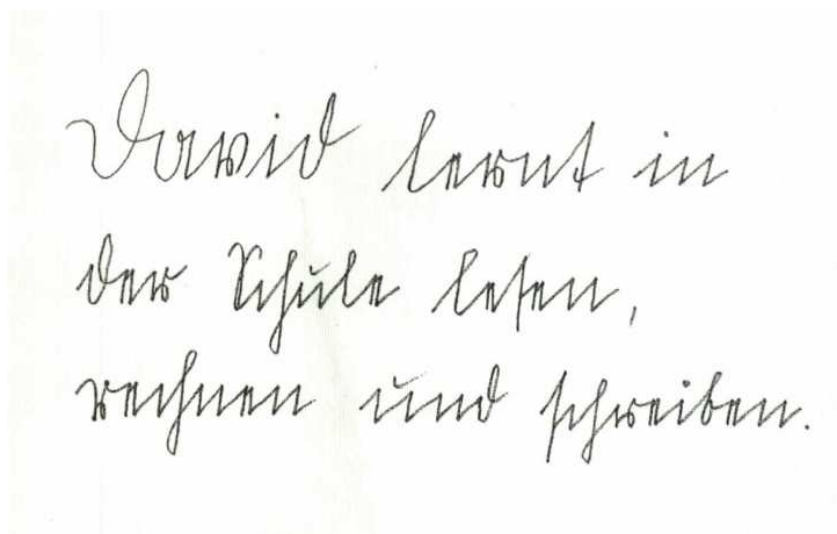 David lernt in
der Schule lesen,
rechnen und schreiben.